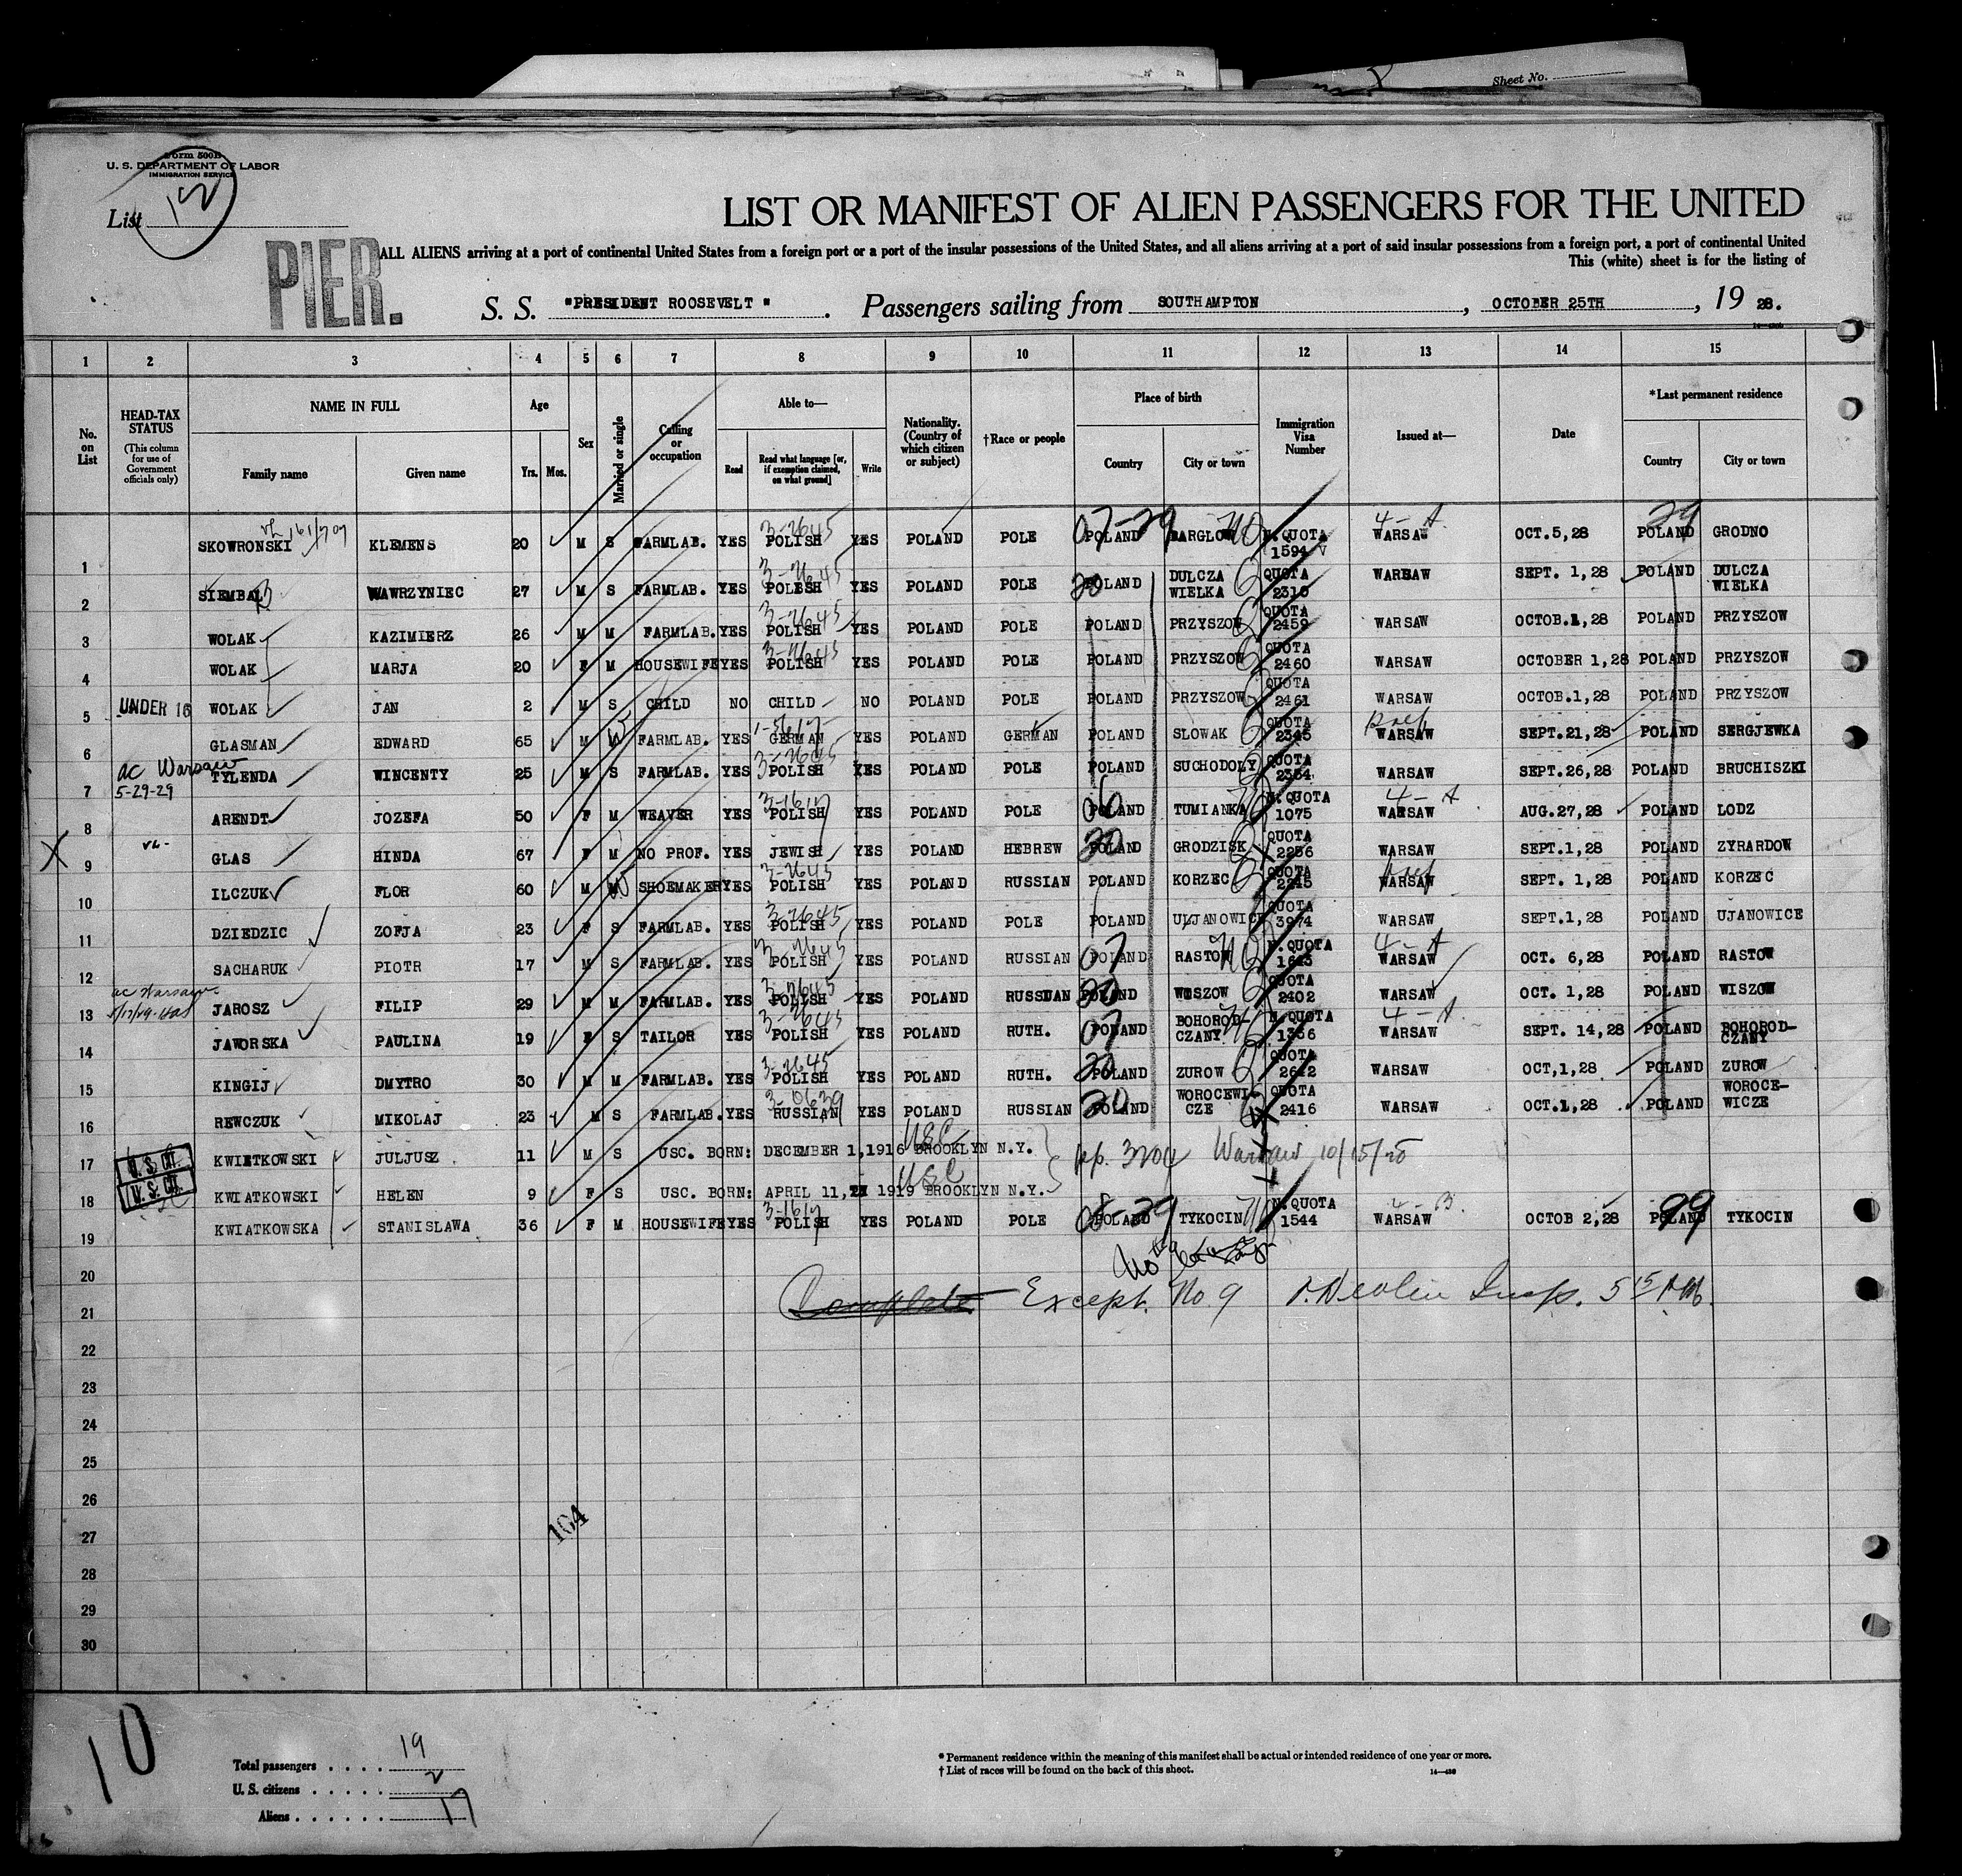 Sheet No.
Form 500B
U. S. DEPARTMENT OF LABOR
IMMIGRATION SERVICE
List 12
LIST OR MANIFEST OF ALIEN PASSENGERS FOR THE UNITED
PIER.
ALL ALIENS arriving at a port of continental United States from a foreign port or a port of the insular possessions of the United States, and all aliens arriving at a port of said insular possessions from a foreign port, a port of continental United
This (white) sheet is for the listing of
S. S. "PRESIDENT ROOSEVELT". Passengers sailing from SOUTHAMPTON, OCTOBER 25TH, 19 28.
1 2 3 4 5 6 7 8 9 10 11 12 13 14 15
No. on List
HEAD-TAX STATUS
(This column for use of Government officials only)
NAME IN FULL
Family name Given name
Age
Yrs. Mos.
Sex
Married or single
Calling or occupation
Able to—
Read Read what language [or, if exemption claimed, on what ground] Write
Nationality. (Country of which citizen or subject)
†Race or people
Place of birth
Country City or town
Immigration Visa Number
Issued at—
Date
*Last permanent residence
Country City or town
1 SKOWRONSKI KLEMENS 20 M S FARMLAB. YES POLISH YES POLAND POLE POLAND BARGLOW N.QUOTA 1594 WARSAW OCT.5,28 POLAND GRODNO
2 SIEMBAL WAWRZYNIEC 27 M S FARMLAB. YES POLISH YES POLAND POLE POLAND DULCZA WIELKA QUOTA 2310 WARSAW SEPT. 1,28 POLAND DULCZA WIELKA
3 WOLAK KAZIMIERZ 26 M M FARMLAB. YES POLISH YES POLAND POLE POLAND PRZYSZOW QUOTA 2459 WARSAW OCTOB.1,28 POLAND PRZYSZOW
4 WOLAK MARJA 20 F M HOUSEWIFE YES POLISH YES POLAND POLE POLAND PRZYSZOW QUOTA 2460 WARSAW OCTOBER 1,28 POLAND PRZYSZOW
5 UNDER 16 WOLAK JAN 2 M S CHILD NO CHILD NO POLAND POLE POLAND PRZYSZOW QUOTA 2461 WARSAW OCTOB.1,28 POLAND PRZYSZOW
6 GLASMAN EDWARD 65 M FARMLAB. YES GERMAN YES POLAND GERMAN POLAND SLOWAK QUOTA 2345 WARSAW SEPT.21,28 POLAND SERGJEWKA
7 ac Warsaw 5-29-29 TYLENDA WINCENTY 25 M S FARMLAB. YES POLISH YES POLAND POLE POLAND SUCHODOLY QUOTA 2354 WARSAW SEPT.26,28 POLAND BRUCHISZKI
8 ARENDT JOZEFA 50 F M WEAVER YES POLISH YES POLAND POLE POLAND TUMIANKA N.QUOTA 1075 WARSAW AUG.27,28 POLAND LODZ
X 9 GLAS HINDA 67 F M NO PROF. YES JEWISH YES POLAND HEBREW POLAND GRODZISK QUOTA 2256 WARSAW SEPT.1,28 POLAND ZYRARDOW
10 ILCZUK FLOR 60 M SHOEMAKER YES POLISH YES POLAND RUSSIAN POLAND KORZEC QUOTA 2245 WARSAW SEPT. 1,28 POLAND KORZEC
11 DZIEDZIC ZOFJA 23 F S FARMLAB. YES POLISH YES POLAND POLE POLAND ULJANOWICE QUOTA 3974 WARSAW SEPT.1,28 POLAND UJANOWICE
12 SACHARUK PIOTR 17 M S FARMLAB. YES POLISH YES POLAND RUSSIAN POLAND RASTOW N.QUOTA 1643 WARSAW OCT. 6,28 POLAND RASTOW
13 ac Warsaw JAROSZ FILIP 29 M M FARMLAB. YES POLISH YES POLAND RUSSIAN POLAND WISZOW QUOTA 2402 WARSAW OCT. 1,28 POLAND WISZOW
14 JAWORSKA PAULINA 19 F S TAILOR YES POLISH YES POLAND RUTH. POLAND BOHORODCZANY N.QUOTA 1336 WARSAW SEPT. 14,28 POLAND BOHOROD-CZANY
15 KINGIJ DMYTRO 30 M M FARMLAB. YES POLISH YES POLAND RUTH. POLAND ZUROW QUOTA 2612 WARSAW OCT,1,28 POLAND ZUROW
16 REWCZUK MIKOLAJ 23 M S FARMLAB. YES RUSSIAN YES POLAND RUSSIAN POLAND WOROCEWICZE QUOTA 2416 WARSAW OCT.1,28 POLAND WOROCE-WICZE
17 U.S. CIT. KWIETKOWSKI JULJUSZ 11 M S USC. BORN: DECEMBER 1,1916 BROOKLYN N.Y. USC
18 U.S. CIT. KWIATKOWSKI HELEN 9 F S USC. BORN: APRIL 11, 1919 BROOKLYN N.Y. USC
19 KWIATKOWSKA STANISLAWA 36 F M HOUSEWIFE YES POLISH YES POLAND POLE POLAND TYKOCIN N.QUOTA 1544 WARSAW OCTOB 2,28 POLAND TYKOCIN
20
21 Complete Except. No. 9
22
23
24
25
26
27 104
28
29
30
10
Total passengers . . . . 19
U. S. citizens . . . . . 2
Aliens . . . . . . 17
* Permanent residence within the meaning of this manifest shall be actual or intended residence of one year or more.
† List of races will be found on the back of this sheet.